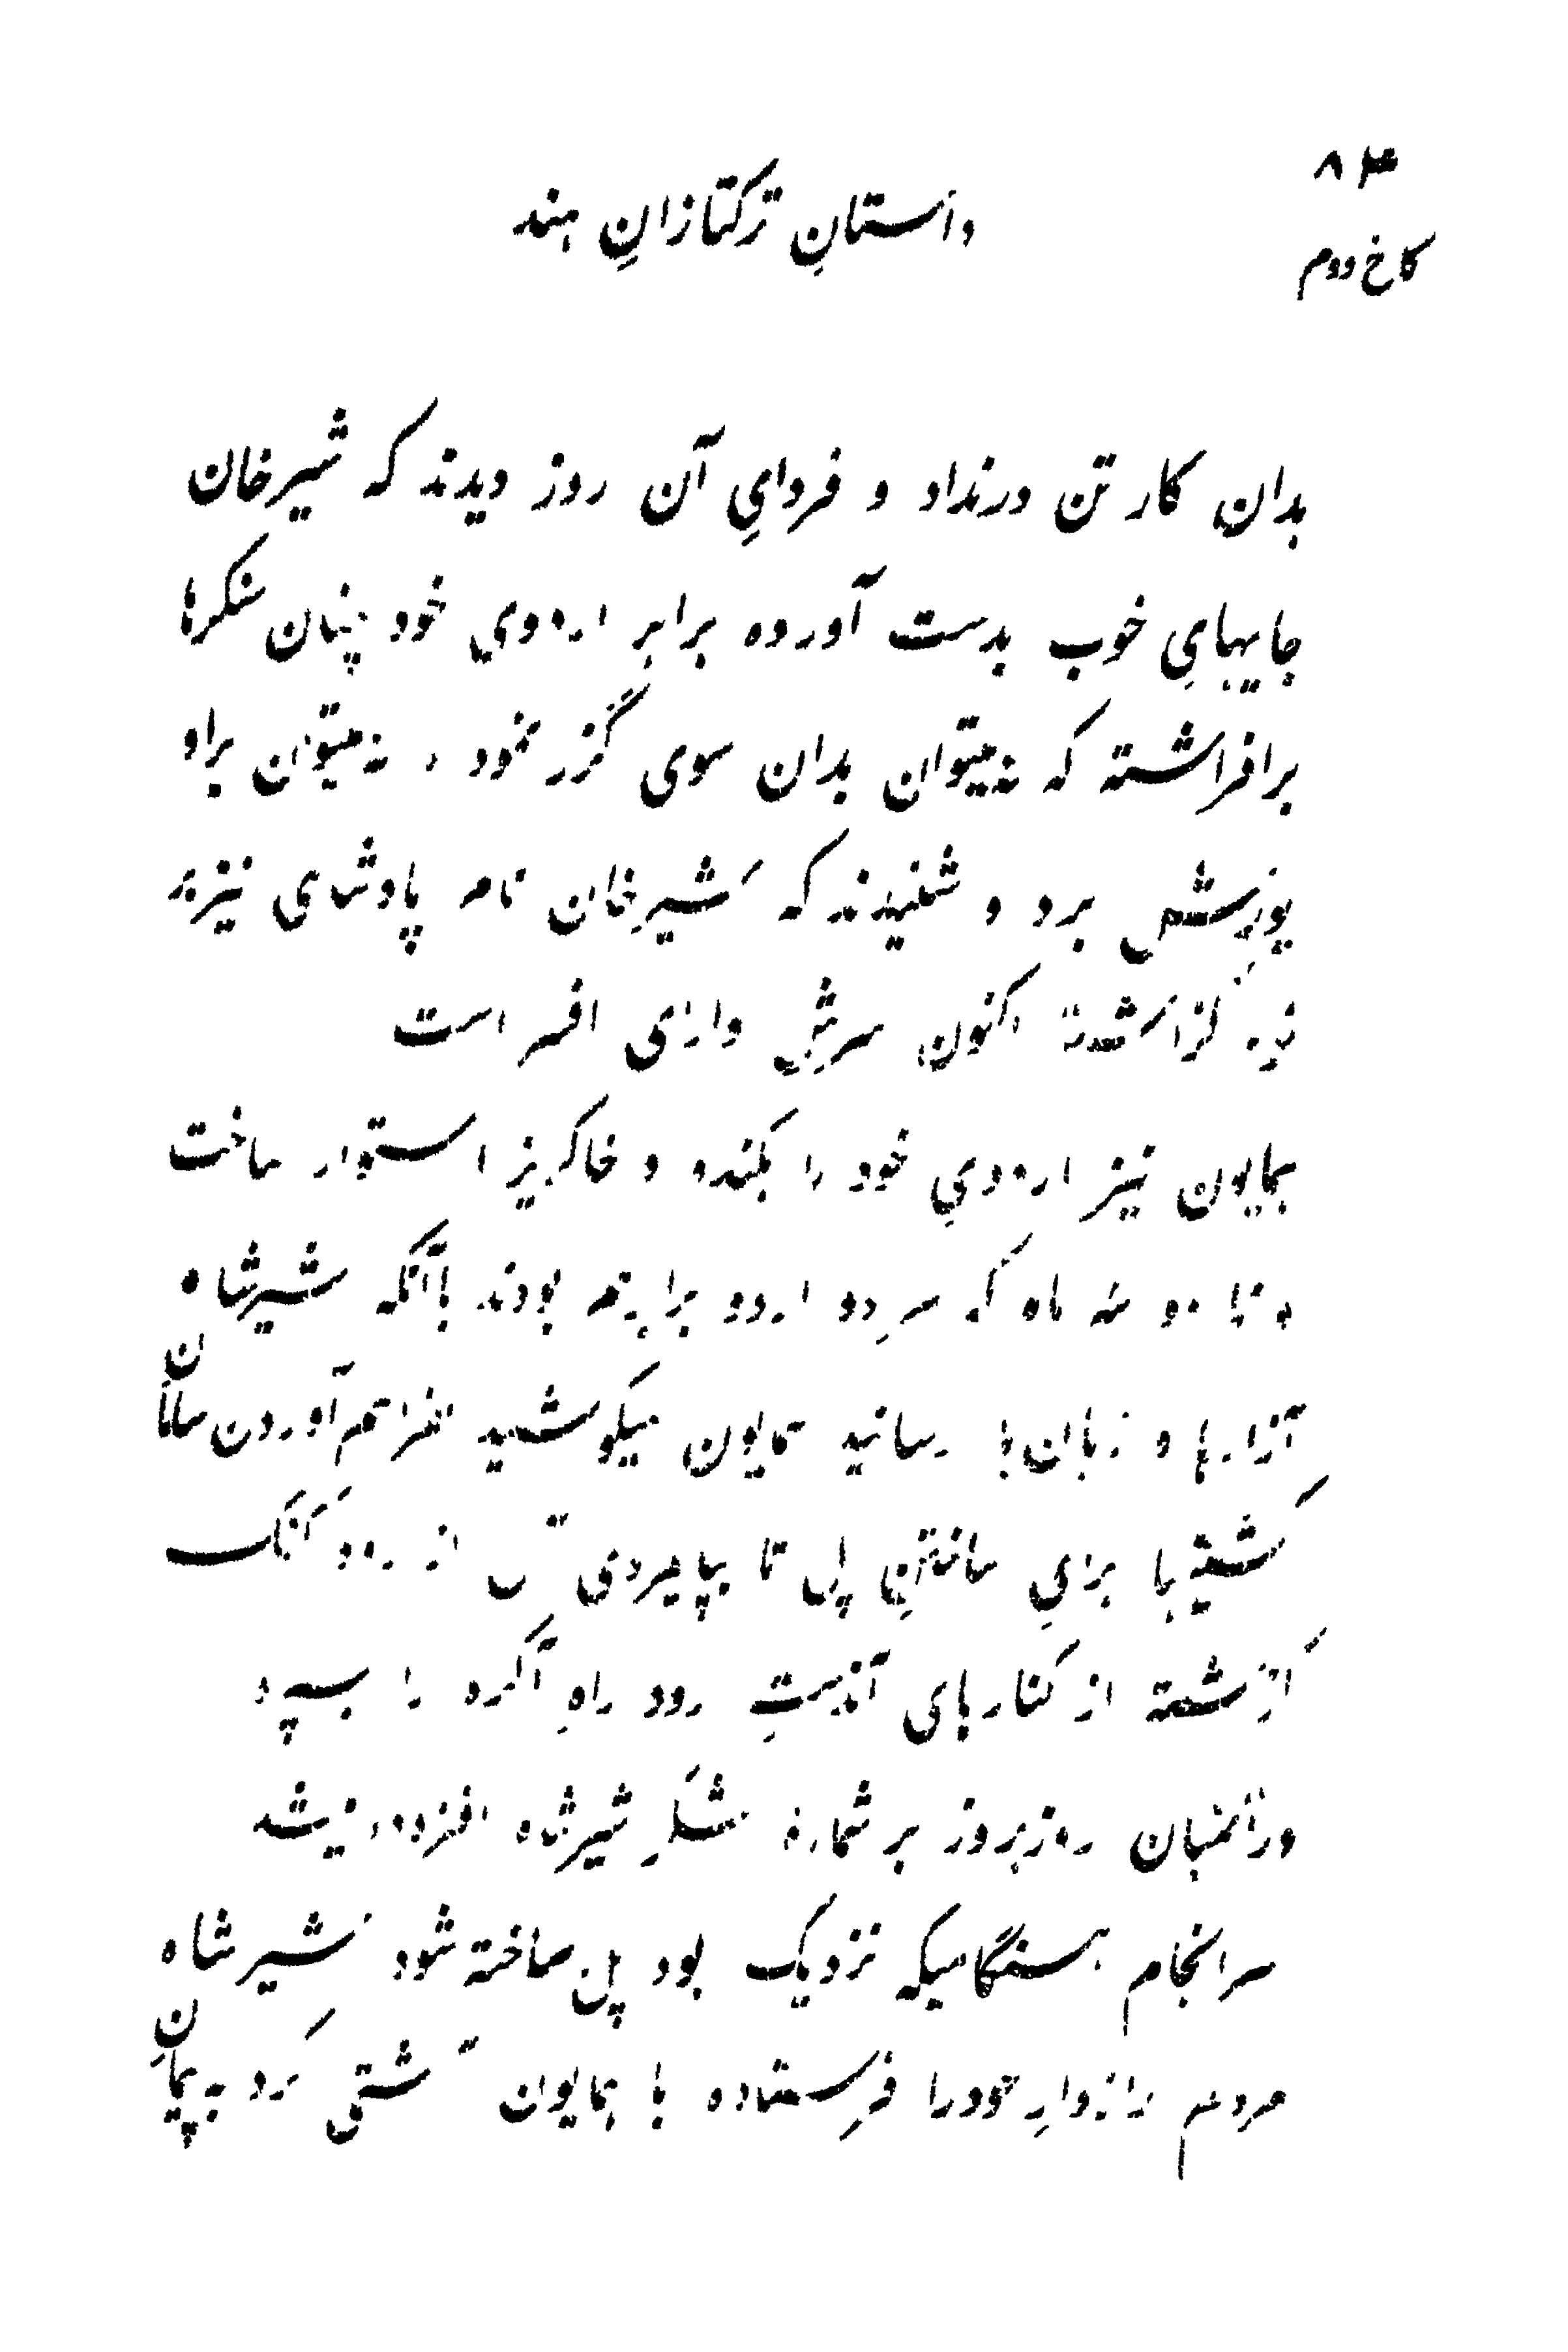 ۸۴
داستانِ ترکتازانِ هند
کاخ دوم
بدان کار تن درنداد و فردایِ آن روز دیدند که شیرخان
جایهایِ خوب بدست آورده برابرِ اردوی خود چنان سنگرها
برافراشته که نه‌میتوان بدان سوی گزر نمود و نه‌میتوان براو
یوزش برد و شنیدند که شیرخان نام پادشاهی نیز بر
خود گزاشته اکنون سرش دارای افسر است
همایون نیز اردویِ خود را بکنده و خاکریز استوار ساخت
و تا دو سه ماه که هر دو اردو برابر هم بودند باآنکه شیرشاه
آزارها و زیان‌ها رسانید همایون میکوشید بفراهم‌آوردن سامان
کشتیها برایِ ساختنِ پل تا بپایمردی آن از رود گنگ
گزشته از کنارهای آندستِ رود راهِ آگره را بسپرد
درآنمیان روزبروز بر شمارهٔ لشکرِ شیرشاه افزوده میشد
سرانجام هنگامیکه نزدیک بود پل ساخته شود شیرشاه
مردم رازدارِ خودرا فرستاده با همایون آشتی کرد به پیمانِ